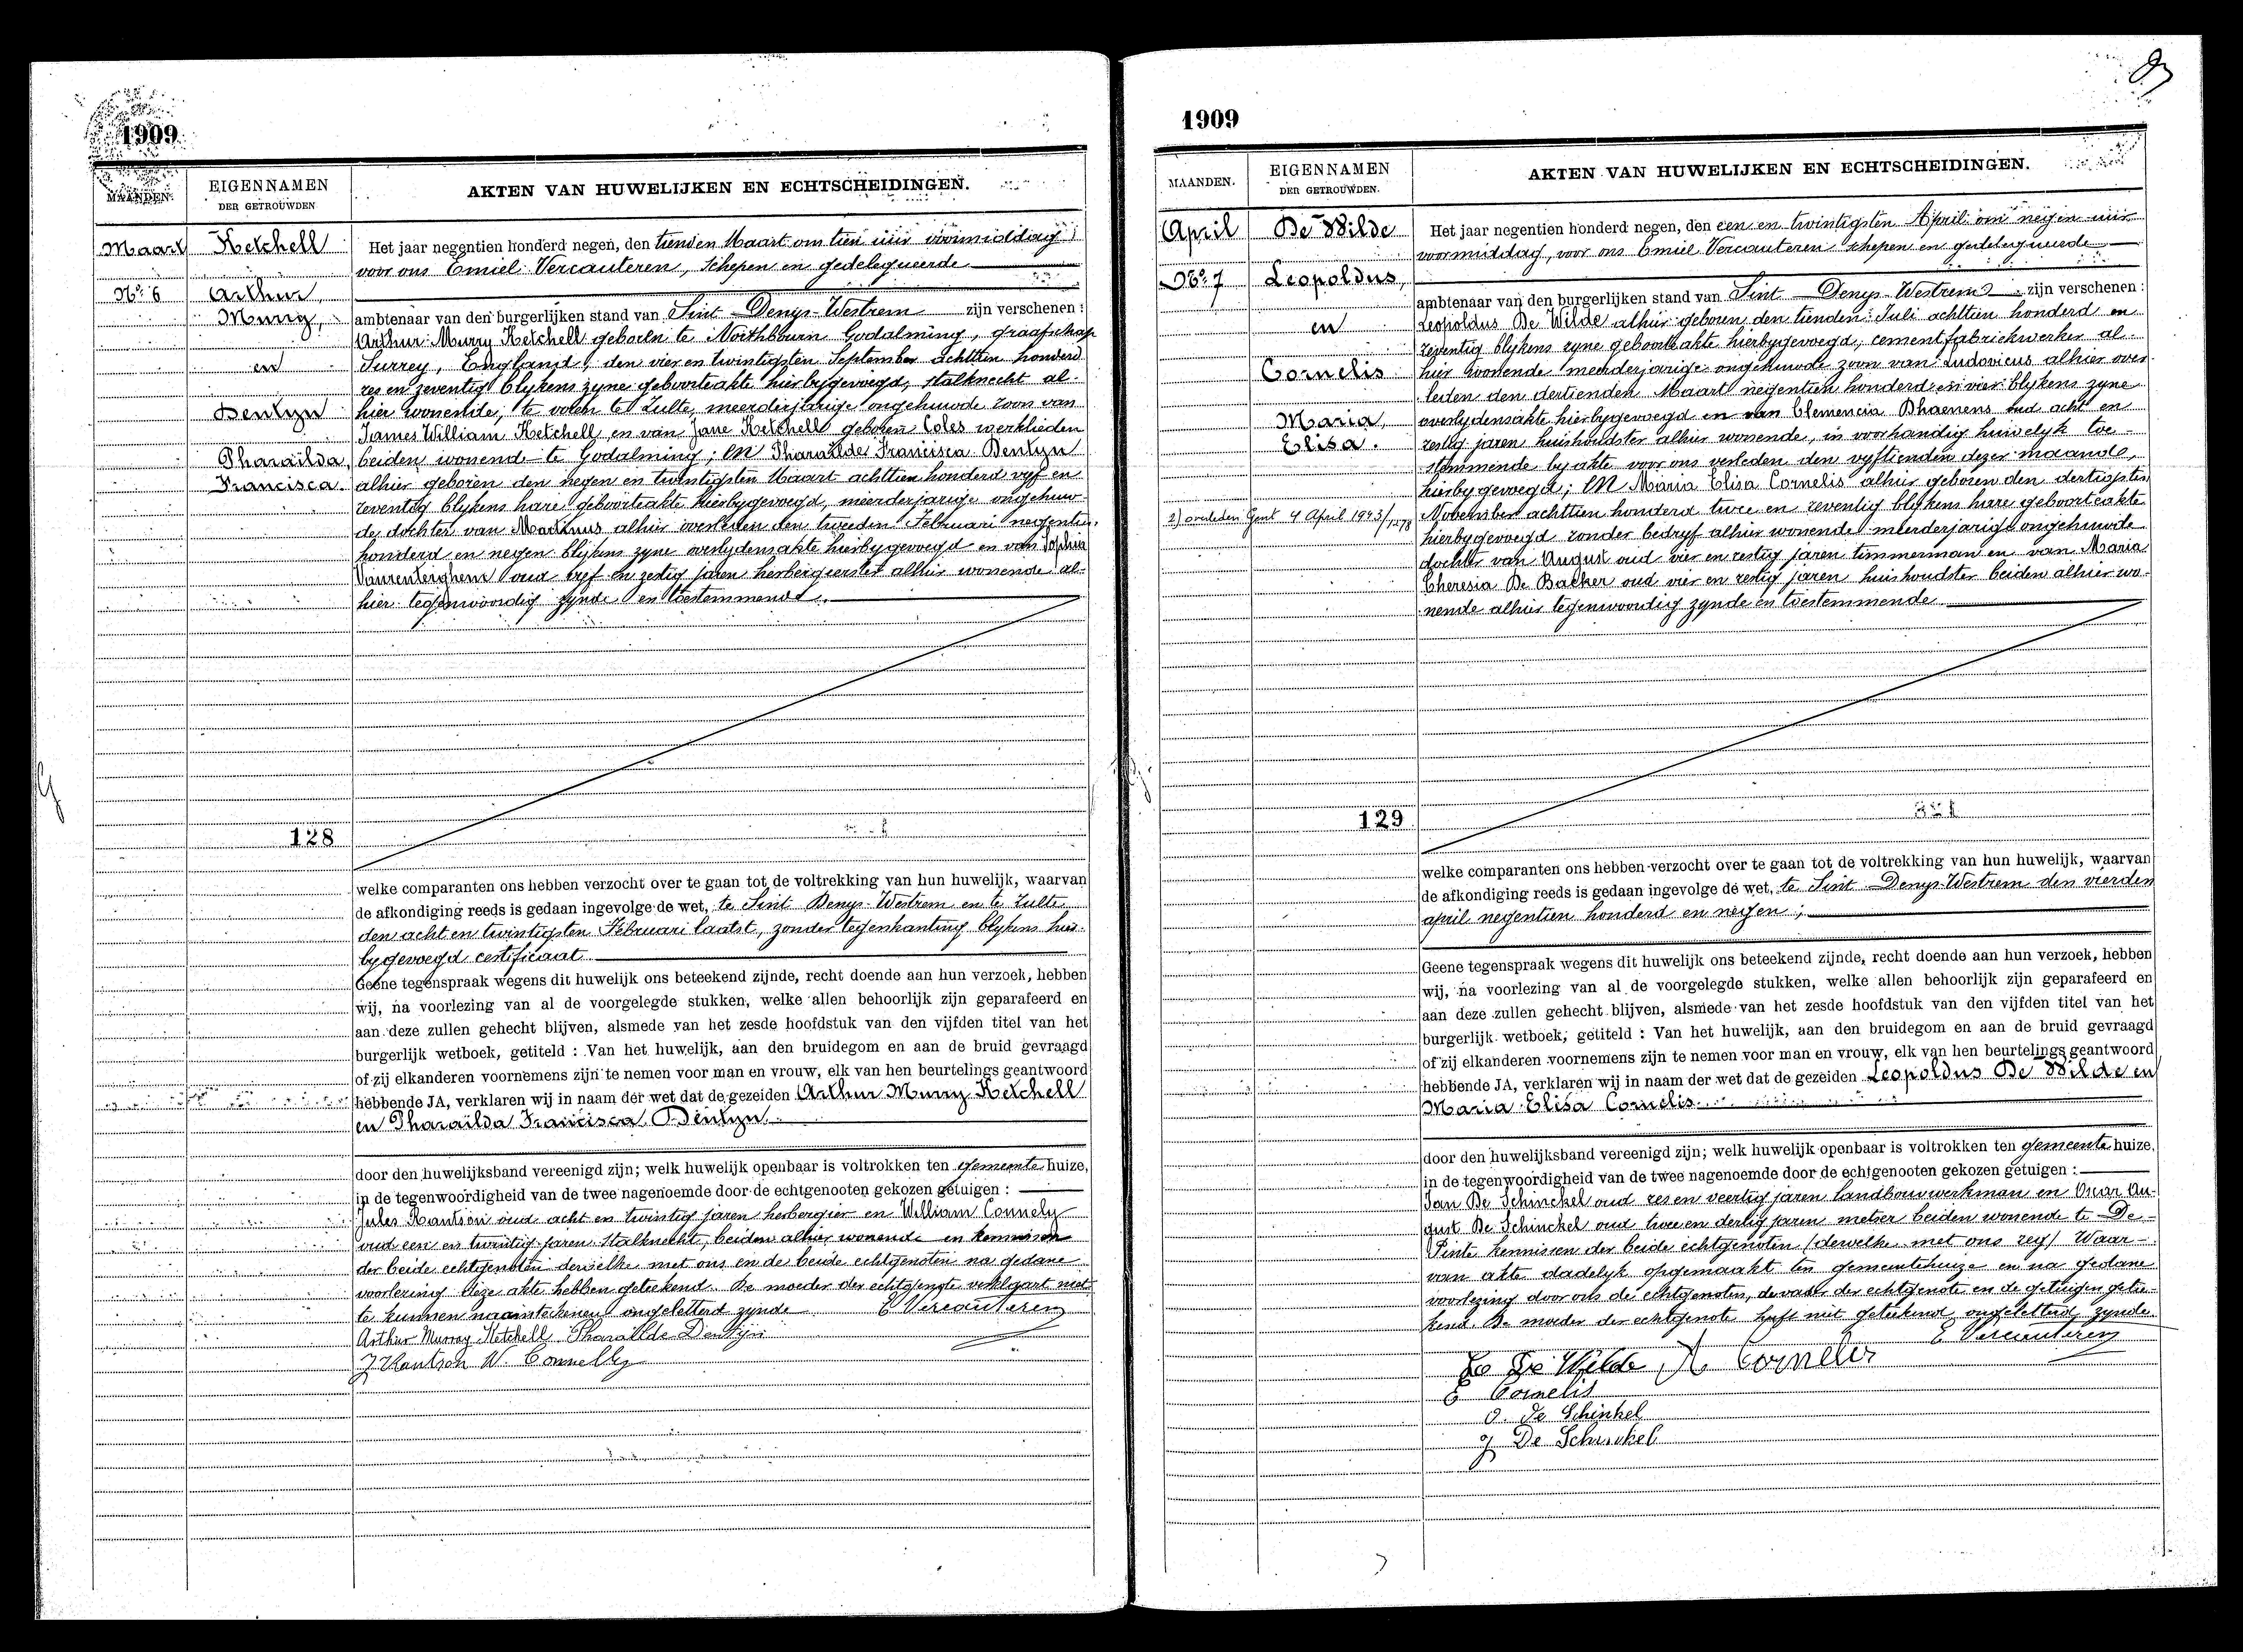 1909
MAANDEN.
EIGENNAMEN
DER GETROUWDEN
AKTEN VAN HUWELIJKEN EN ECHTSCHEIDINGEN.
Maart
Ketchell
No 6
Arthur
Murry,
en
Dentyn
Pharaïlda,
Francisca.
128
Het jaar negentien honderd negen, den tienden Maart om tien uur voormiddag
voor ons Emiel Vercauteren, schepen en gedelegueerde
ambtenaar van den burgerlijken stand van Sint Denys-Westrem zijn verschenen :
Arthur Murry Ketchell geboren te Northbourn Godalming, graafschap
Surrey, Engeland, den vier en twintigsten September achttien honderd
zes en zeventig blykens zyne geboorteakte hierbygevoegd, stalknecht al-
hier wonende, te voren te Zulte, meerderjarige ongehuwde zoon van
James William Ketchell en van Jane Ketchell geboren Coles werklieden
beiden wonend te Godalming; en Pharaïlde Francisca Dentyn
alhier geboren den negen en twintigsten Maart achttien honderd vyf en
zeventig blykens hare geboorteakte hierbygevoegd, meerderjarige ongehuw-
de dochter van Martinus alhier overleden den tweeden Februari negentien
honderd en negen blykens zyne overlydensakte hierbygevoegd en van Sophia
Vanrenterghem oud vyf en zestig jaren herbergierster alhier wonende al-
hier tegenwoordig zynde en toestemmend.
welke comparanten ons hebben verzocht over te gaan tot de voltrekking van hun huwelijk, waarvan
de afkondiging reeds is gedaan ingevolge de wet, te Sint Denys-Westrem en te Zulte
den acht en twintigsten Februari laatst, zonder tegenkanting blykens hier-
bygevoegd certificaat
Geene tegenspraak wegens dit huwelijk ons beteekend zijnde, recht doende aan hun verzoek, hebben
wij, na voorlezing van al de voorgelegde stukken, welke allen behoorlijk zijn geparafeerd en
aan deze zullen gehecht blijven, alsmede van het zesde hoofdstuk van den vijfden titel van het
burgerlijk wetboek, getiteld : Van het huwelijk, aan den bruidegom en aan de bruid gevraagd
of zij elkanderen voornemens zijn te nemen voor man en vrouw, elk van hen beurtelings geantwoord
hebbende JA, verklaren wij in naam der wet dat de gezeiden Arthur Murry Ketchell
en Pharaïlda Francisca Dentyn.
door den huwelijksband vereenigd zijn; welk huwelijk openbaar is voltrokken ten gemeente huize,
in de tegenwoordigheid van de twee nagenoemde door de echtgenooten gekozen getuigen :
Jules Hantson oud acht en twintig jaren herbergier en William Connely
oud een en twintig jaren stalknecht, beiden alhier wonende en kennissen
der beide echtgenoten derwelke met ons en de beide echtgenoten na gedane
voorlezing deze akte hebben geteekend. De moeder der echtgenote verklaart niet
te kunnen naamteekenen ongeletterd zynde E Vercauteren
Arthur Murray Ketchell Pharaïlde Dentijn
J Hantson W. Connelly
1909
MAANDEN.
EIGENNAMEN
DER GETROUWDEN.
AKTEN VAN HUWELIJKEN EN ECHTSCHEIDINGEN.
April
De Wilde
No 7
Leopoldus,
en
Cornelis
Maria,
Elisa.
2) overleden Gent 4 April 1943/1278
129
Het jaar negentien honderd negen, den een en twintigsten April om negen uur
voormiddag, voor ons Emiel Vercauteren schepen en gedelegueerde
ambtenaar van den burgerlijken stand van Sint Denys-Westrem zijn verschenen :
Leopoldus De Wilde alhier geboren den tienden Juli achttien honderd en
zeventig blykens zyne geboorteakte hierbygevoegd, cementfabriekwerker al-
hier wonende meerderjarige ongehuwde zoon van Ludovicus alhier over-
leden den dertienden Maart negentien honderd en vier blykens zyne
overlydensakte hierbygevoegd en van Clemencia Dhaenens oud acht en
zestig jaren huishoudster alhier wonende, in voorhandig huwelyk toe-
stemmende by akte voor ons verleden den vyftienden dezer maande,
hierbygevoegd; en Maria Elisa Cornelis alhier geboren den dertigsten
November achttien honderd twee en zeventig blykens hare geboorteakte
hierbygevoegd zonder bedryf alhier wonende meerderjarige ongehuwde
dochter van August oud vier en zestig jaren timmerman en van Maria
Theresia De Backer oud vier en zestig jaren huishoudster beiden alhier wo-
nende alhier tegenwoordig zynde en toestemmende
welke comparanten ons hebben verzocht over te gaan tot de voltrekking van hun huwelijk, waarvan
de afkondiging reeds is gedaan ingevolge de wet, te Sint Denys-Westrem den vierden
april negentien honderd en negen;
Geene tegenspraak wegens dit huwelijk ons beteekend zijnde, recht doende aan hun verzoek, hebben
wij, na voorlezing van al de voorgelegde stukken, welke allen behoorlijk zijn geparafeerd en
aan deze zullen gehecht blijven, alsmede van het zesde hoofdstuk van den vijfden titel van het
burgerlijk wetboek, getiteld : Van het huwelijk, aan den bruidegom en aan de bruid gevraagd
of zij elkanderen voornemens zijn te nemen voor man en vrouw, elk van hen beurtelings geantwoord
hebbende JA, verklaren wij in naam der wet dat de gezeiden Leopoldus De Wilde en
Maria Elisa Cornelis.
door den huwelijksband vereenigd zijn; welk huwelijk openbaar is voltrokken ten gemeente huize,
in de tegenwoordigheid van de twee nagenoemde door de echtgenooten gekozen getuigen :
Jan De Schinckel oud zes en veertig jaren landbouwwerkman en Oscar Au-
gust De Schinckel oud twee en dertig jaren metser beiden wonende te De-
Pinte kennissen der beide echtgenoten (derwelke met ons zey) Waar-
van akte dadelyk opgemaakt ten gemeentehuize en na gedane
voorlezing door ons de echtgenoten, de vader der echtgenote en de getuigen getee-
kend. De moeder der echtgenote heeft niet geteekend ongeletterd zynde.
E Vercauteren
De Wilde A Cornelis
E Cornelis
O. De Schinkel
J De Schinckel